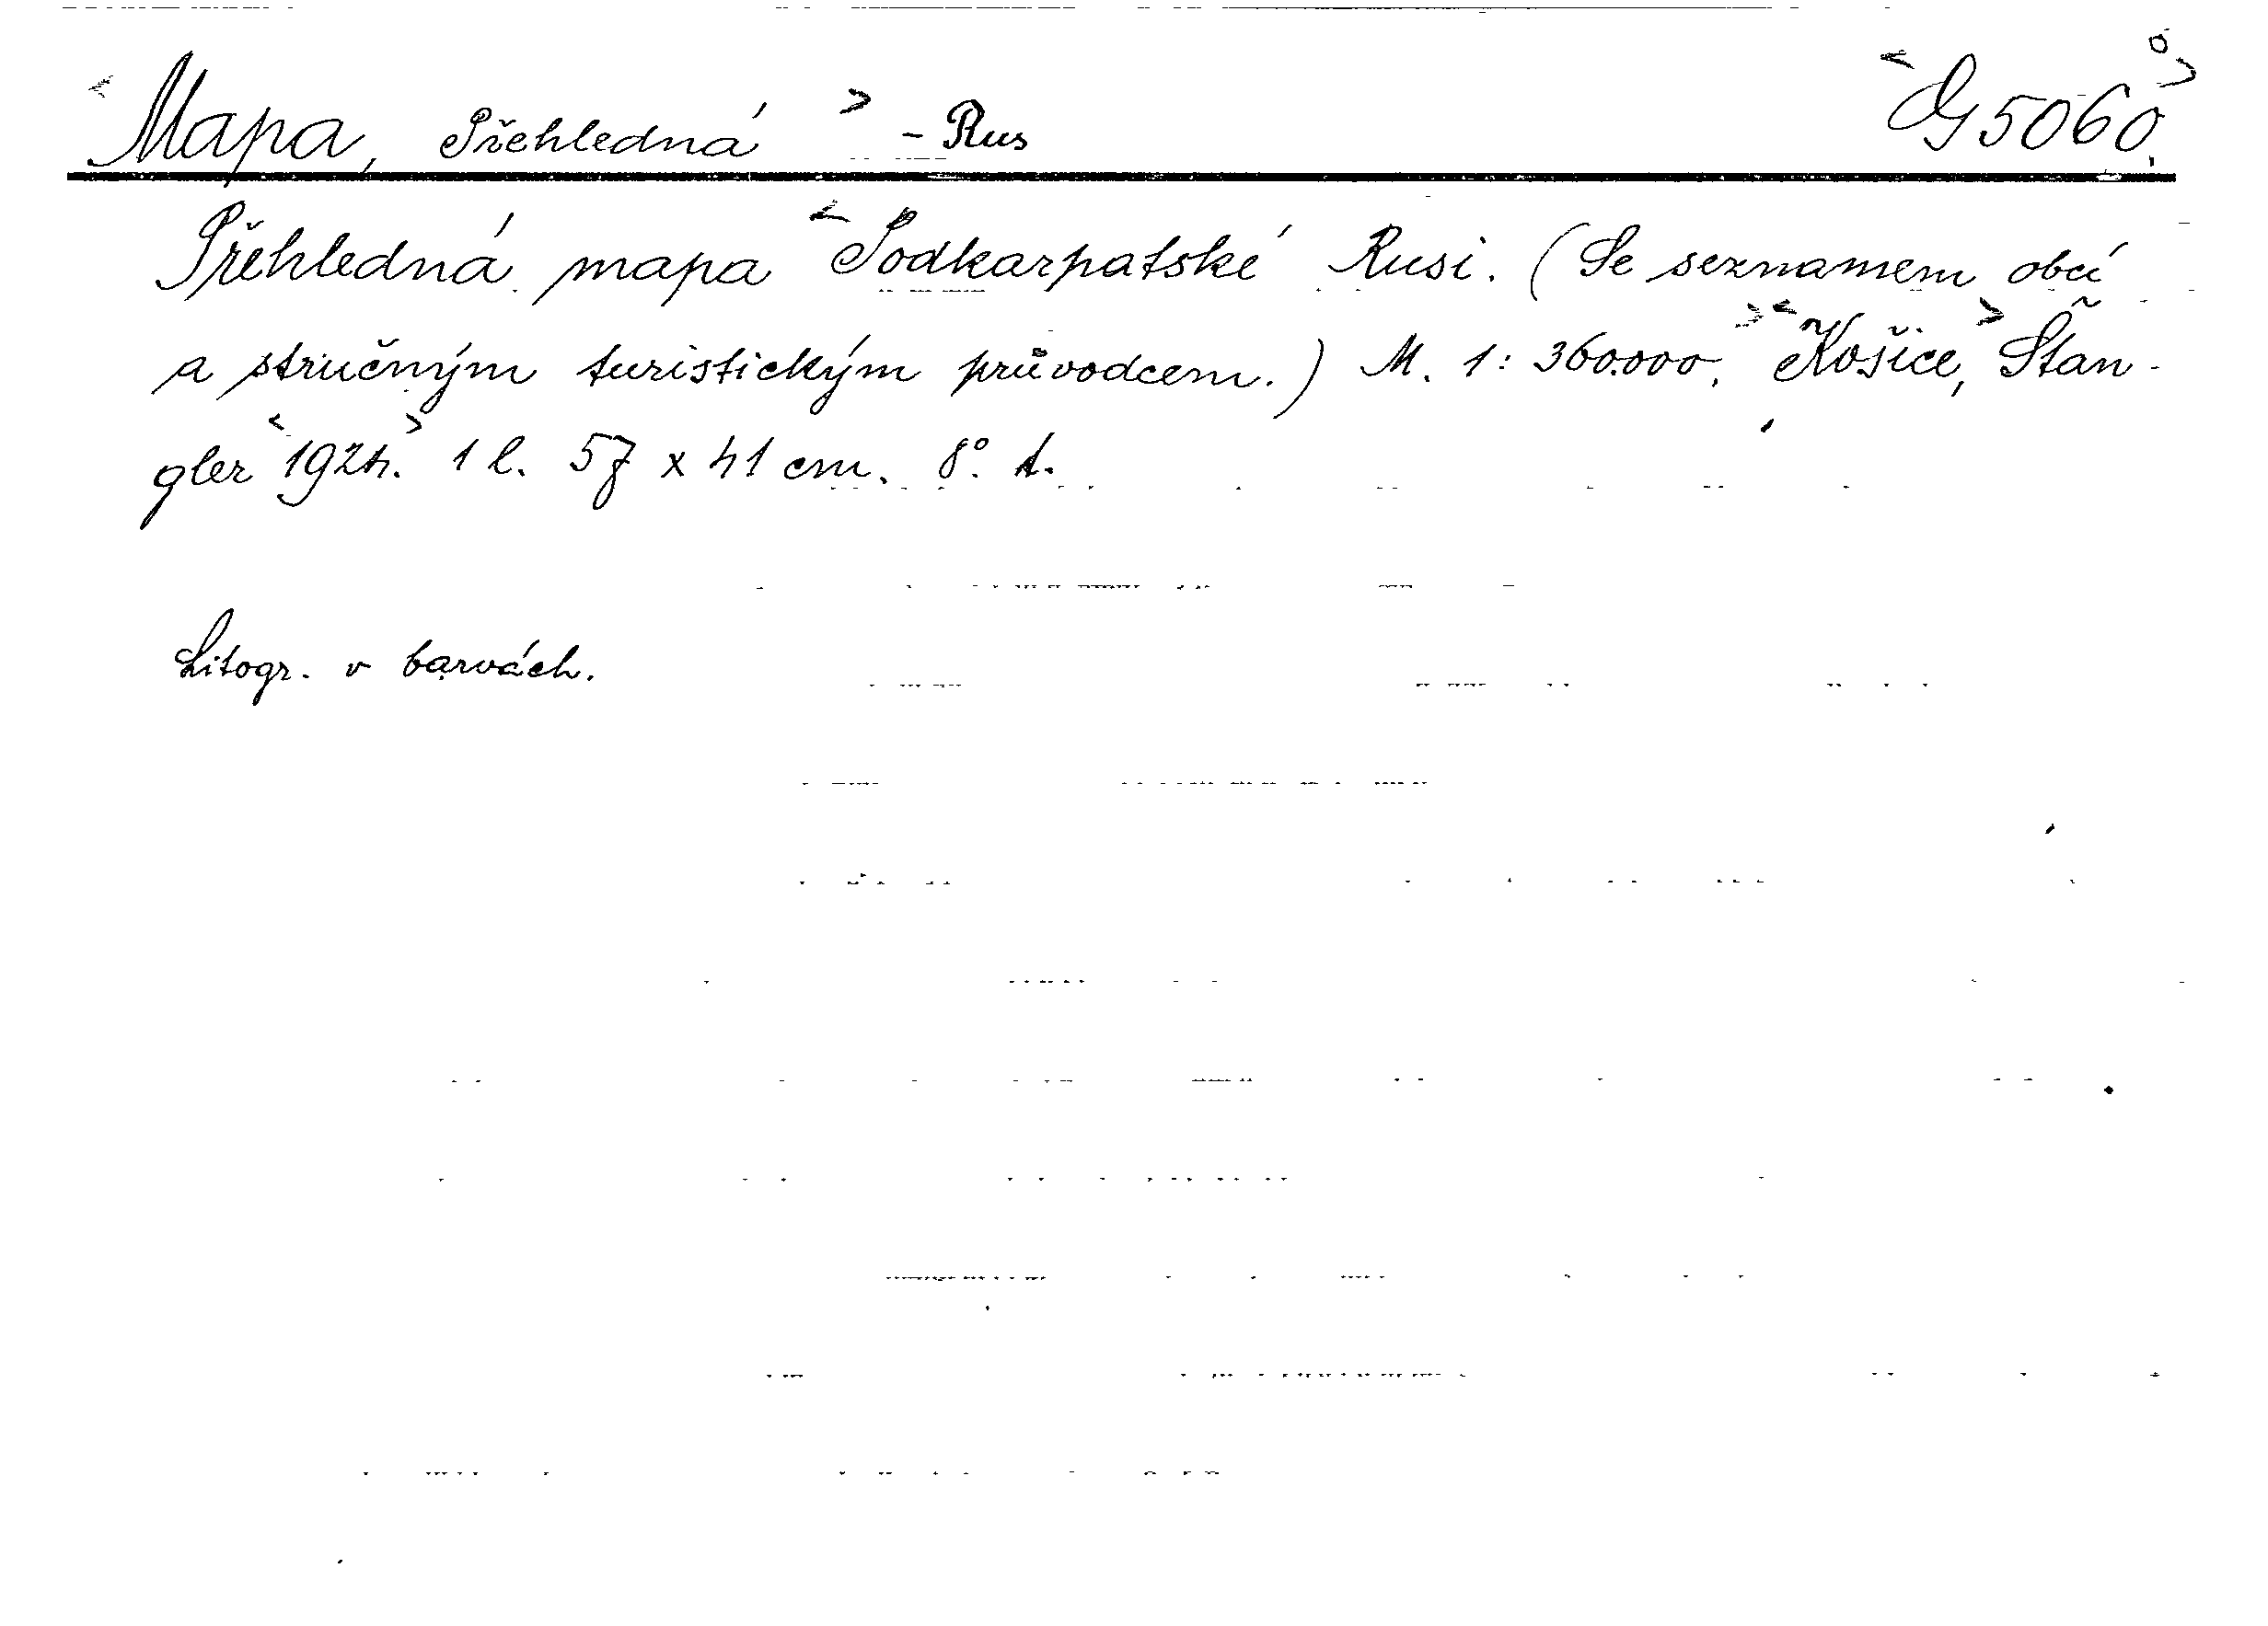 <Mapa, Přehledná> - Rus <G 5060.>
Přehledná mapa <Podkarpatské Rusi. (Se seznamem obcí
a stručným turistickým průvodcem.) M. 1: 360.000.> <Košice,> Štan-
gler <1924.> 1 l. 57 x 41 cm. 8°.
Litogr. v barvách.